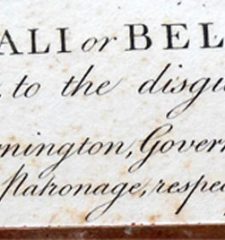 ALI or BEL
to the disgu
nington, Govern
Patronage, respec